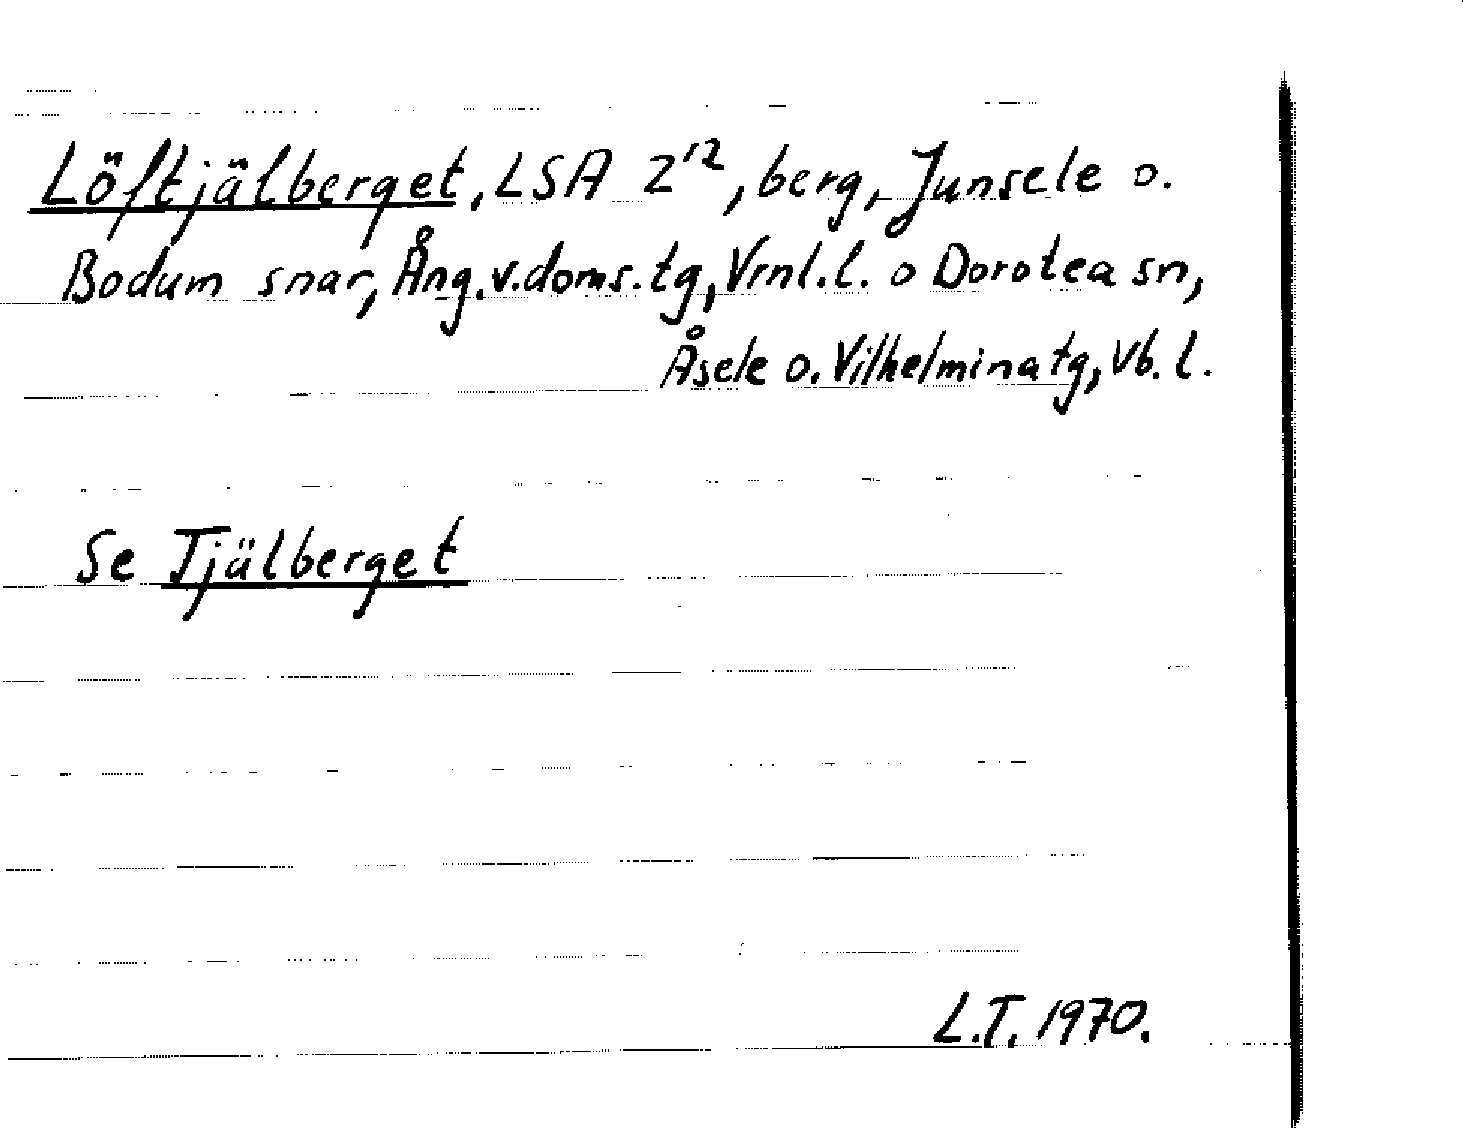 Löftjälberget, LSA Z'2, berg, Junsele o.
Bodum snar, Ång.v.doms.tg, Vrnl.l. o Dorotea sn,
Åsele o. Vilhelmina tg, Vb. l.
Se Tjälberget
L.T. 1970.